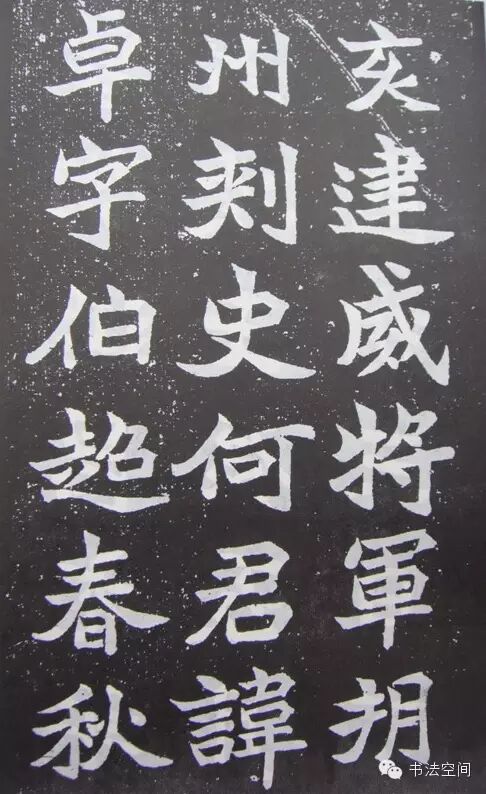 亥建威將軍朔
州刾史何君諱
卓字伯超春秋
书法空间